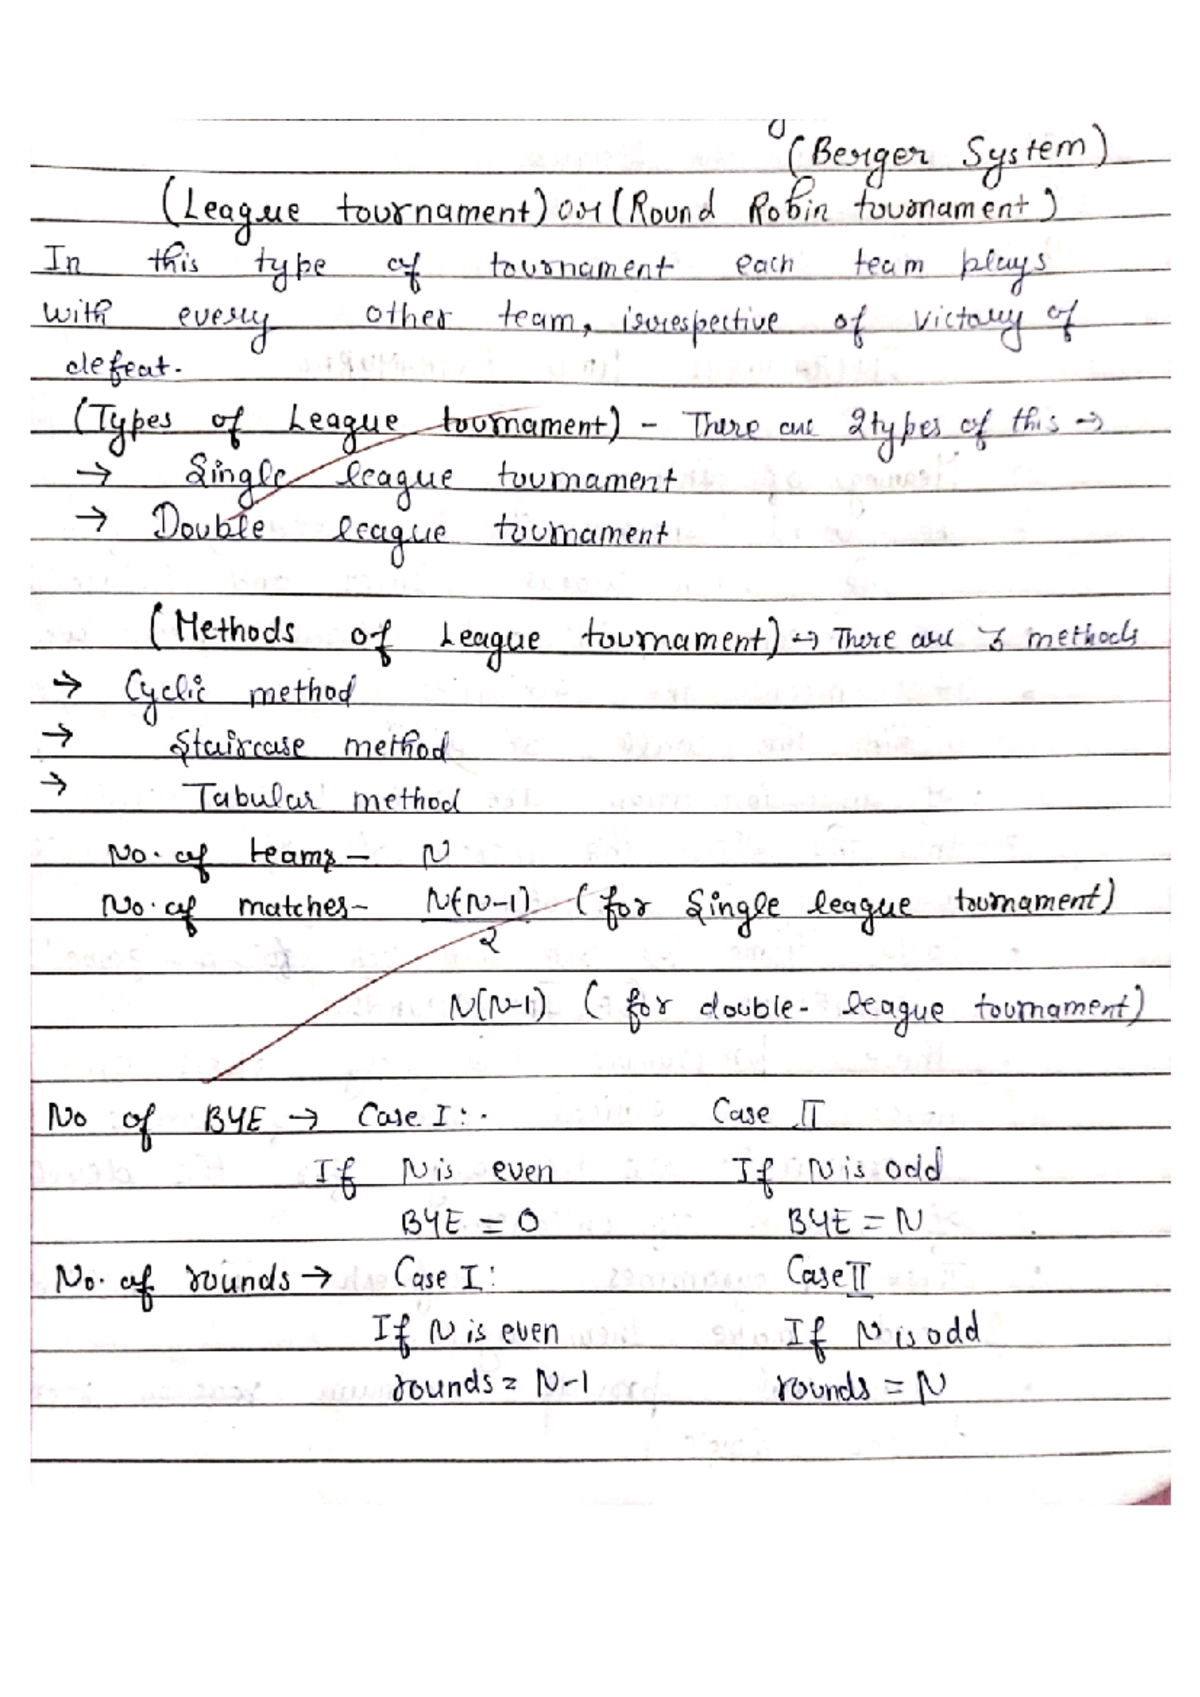 (Berger System)
(League tournament) or (Round Robin tournament)
In this type of tournament each team plays
with every other team, irrespective of victory of
defeat.
(Types of League tournament) - There are 2 types of this →
→ Single league tournament
→ Double league tournament
(Methods of League tournament) → There are 3 methods
→ Cyclic method
→ Staircase method
→ Tabular method
No. of teams - N
No. of matches - N(N-1)/2 (for single league tournament)
N(N-1) (for double- league tournament)
No of BYE → Case I :- Case II
If N is even If N is odd
BYE = 0 BYE = N
No. of rounds → Case I : Case II
If N is even If N is odd
rounds = N-1 rounds = N